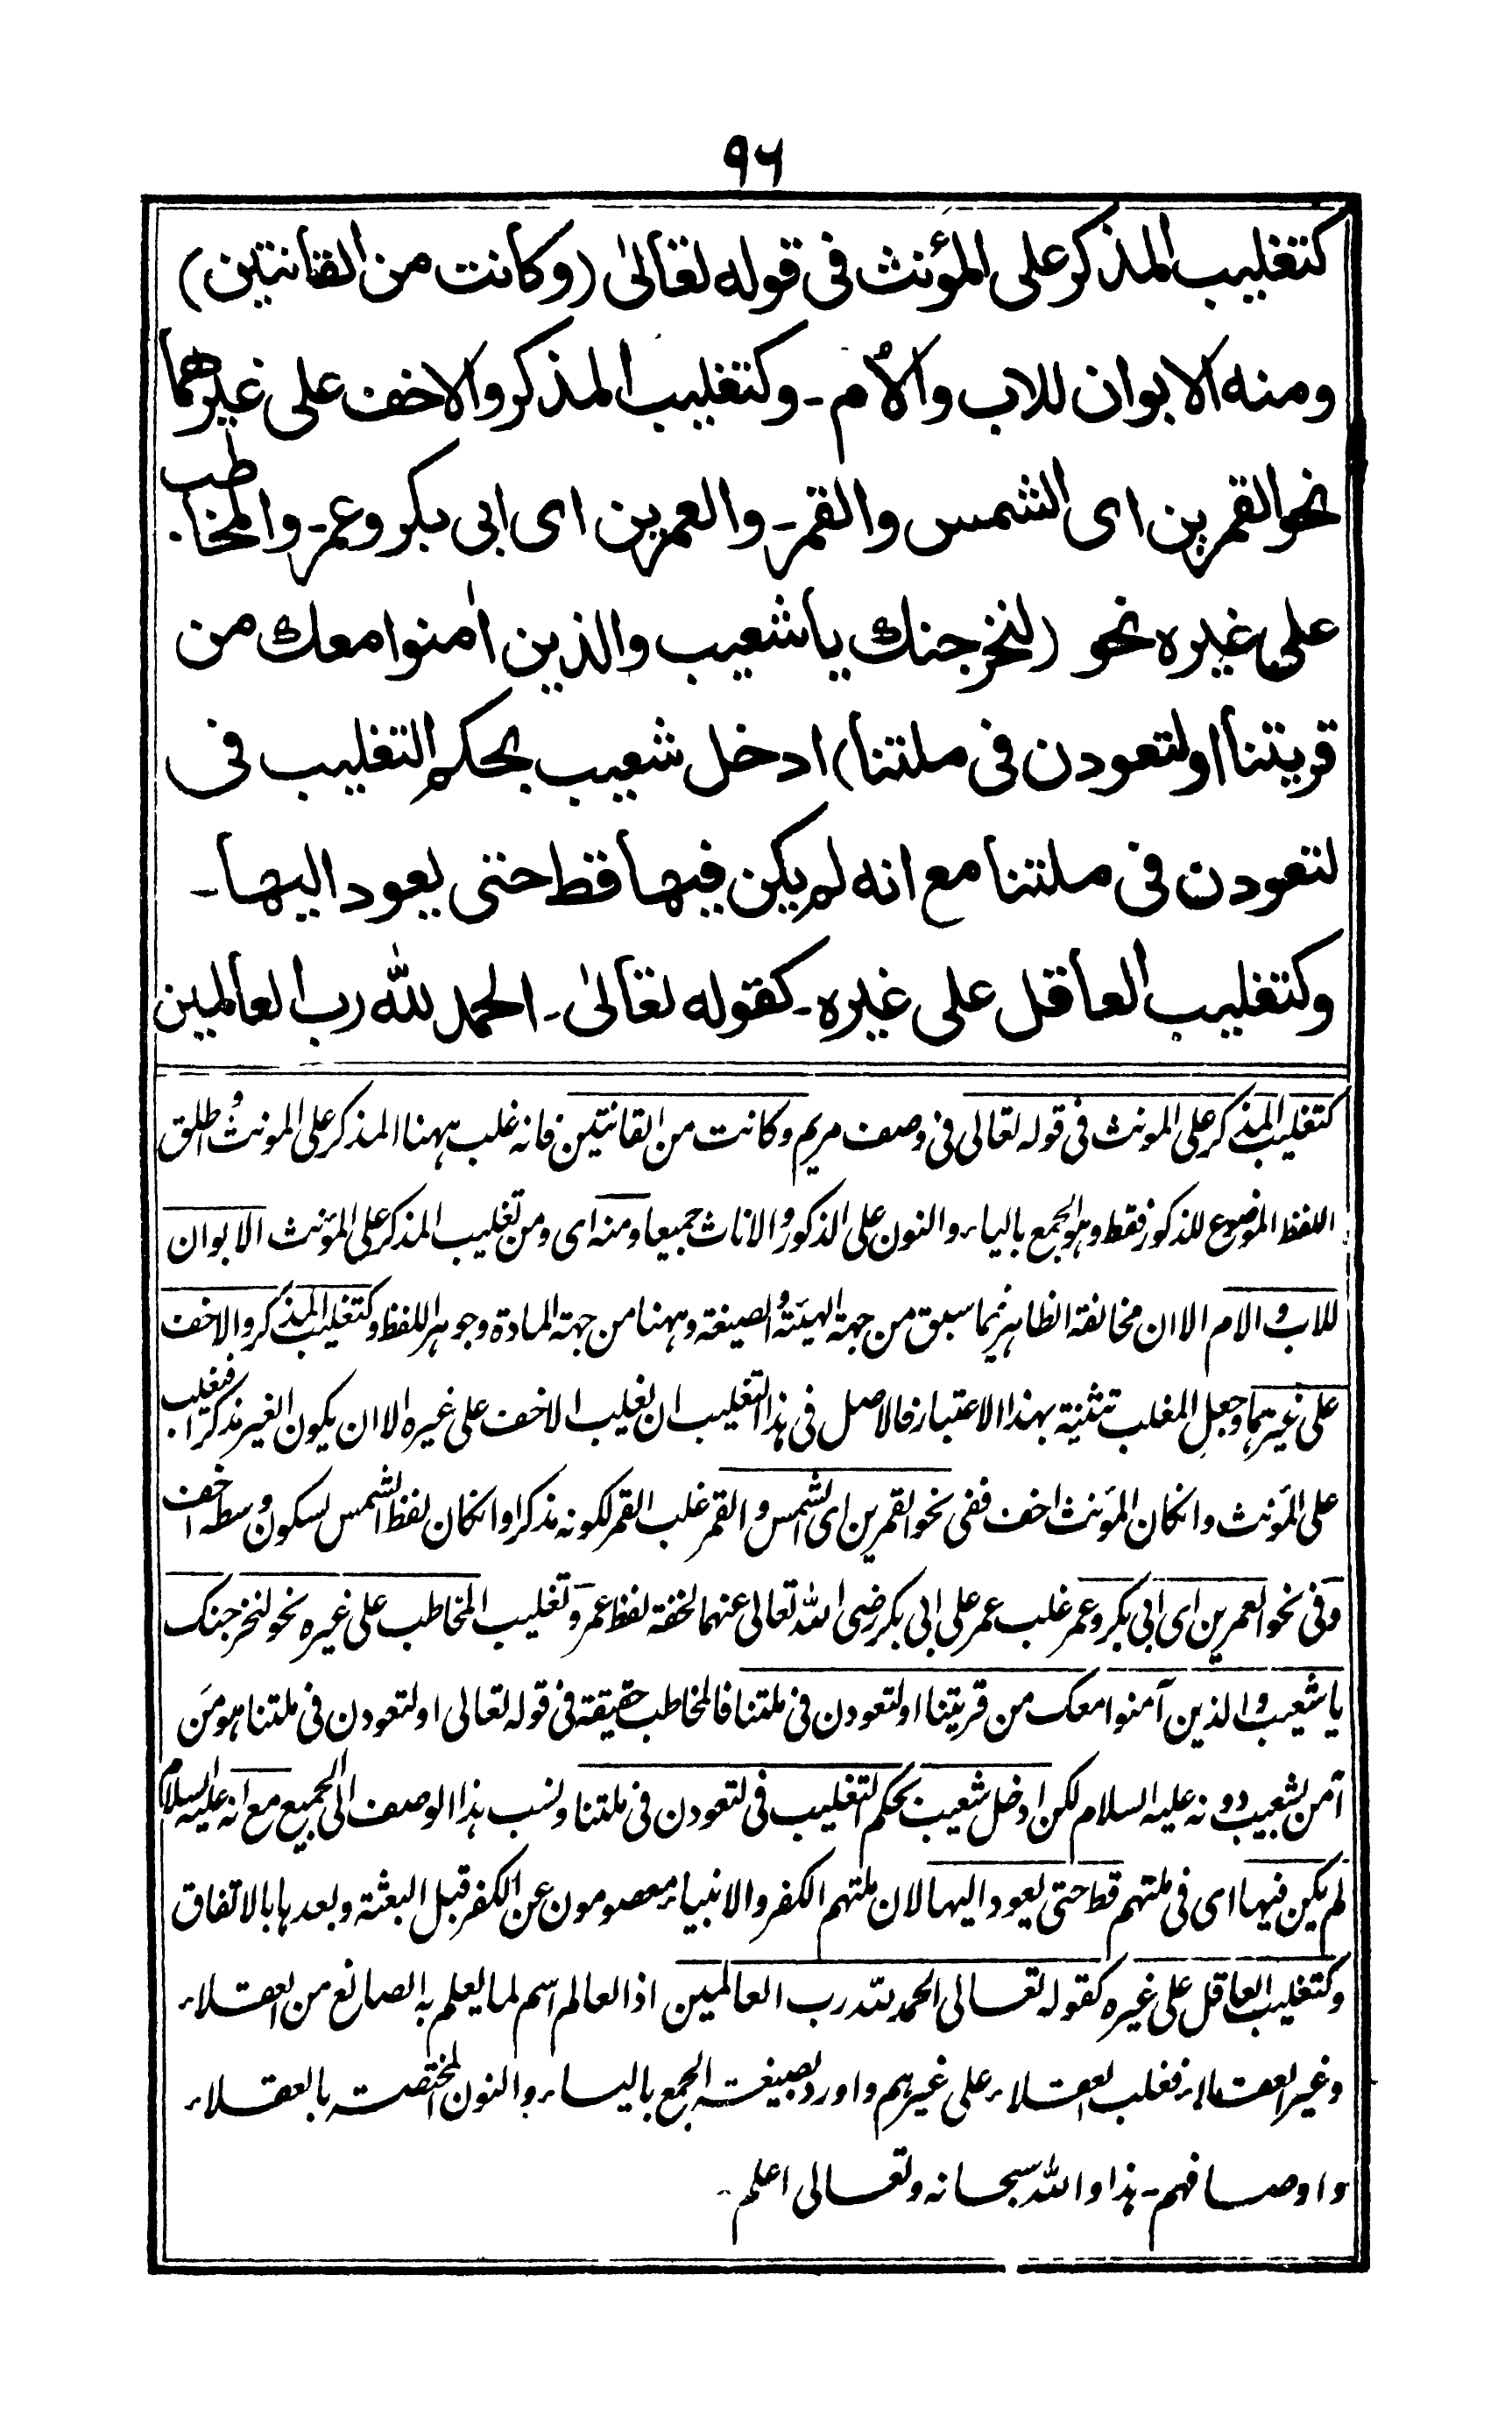 ٩٦
كتغليب المذكر على المؤنث فى قوله تعالىٰ (وكانت من القانتين)
ومنه الابوان للاب والأم ـ وكتغليب المذكر والاخف على غيرهما
نحو القمرين اى الشمس والقمر ـ والعمرين اى ابى بكر وعمر ـ والمخاطب
على غيره نحو (لنخرجنك ياشعيب والذين اٰمنوا معك من
قريتنا او لتعودن فى ملتنا) ادخل شعيب بحكم التغليب فى
لتعودن فى ملتنا مع انه لم يكن فيها قط حتى يعود اليها ـ
وكتغليب العاقل على غيره ـ كقوله تعالىٰ ـ الحمد لله رب العالمين
كتغليب المذكر على المونث فى قوله تعالى فى وصف مريم وكانت من القانتين فانه غلب ههنا المذكر على المونث واطلق
اللفظ الموضوع للذكور فقط وهو الجمع بالياء والنون على الذكور والاناث جميعا ومنه اى ومن تغليب المذكر على المؤنث الابوان
للاب والام الا ان مخالفة الظاهر فيما سبق من جهة الهيئة والصيغة وههنا من جهة المادة وجوهر اللفظ وكتغليب المذكر والاخف
على غيرهما وجعل المغلب تثنية بهذا الاعتبار فالاصل فى هذا التغليب ان يغلب الاخف على غيره الا ان يكون الغير مذكرا فيغلب
على المؤنث وانكان المؤنث اخف ففى نحو القمرين اى الشمس والقمر غلب القمر لكونه مذكرا وانكان لفظ الشمس لسكون وسطه اخف
وفى نحو العمرين اى ابى بكر وعمر غلب عمر على ابى بكر رضى الله تعالى عنهما لخفة لفظ عمر وتغليب المخاطب على غيره نحو لنخرجنك
ياشعيب والذين آمنوا معك من قريتنا او لتعودن فى ملتنا فالمخاطب حقيقة فى قوله تعالى او لتعودن فى ملتنا هو من
آمن بشعيب دونه عليه السلام لكن ادخل شعيب بحكم التغليب فى لتعودن فى ملتنا ونسب هذا الوصف الى الجميع مع انه عليه السلام
لم يكن فيها اى فى ملتهم قط حتى يعود اليها لان ملتهم الكفر والانبياء معصومون عن الكفر قبل البعثة وبعدها بالاتفاق
وكتغليب العاقل على غيره كقوله تعالى الحمد لله رب العالمين اذ العالم اسم لما يعلم به الصانع من العقلاء
وغير العقلاء فغلب العقلاء على غيرهم واورد بصيغة الجمع بالياء والنون المختصة بالعقلاء
واوصافهم ـ هذا والله سبحانه وتعالى اعلم ـ